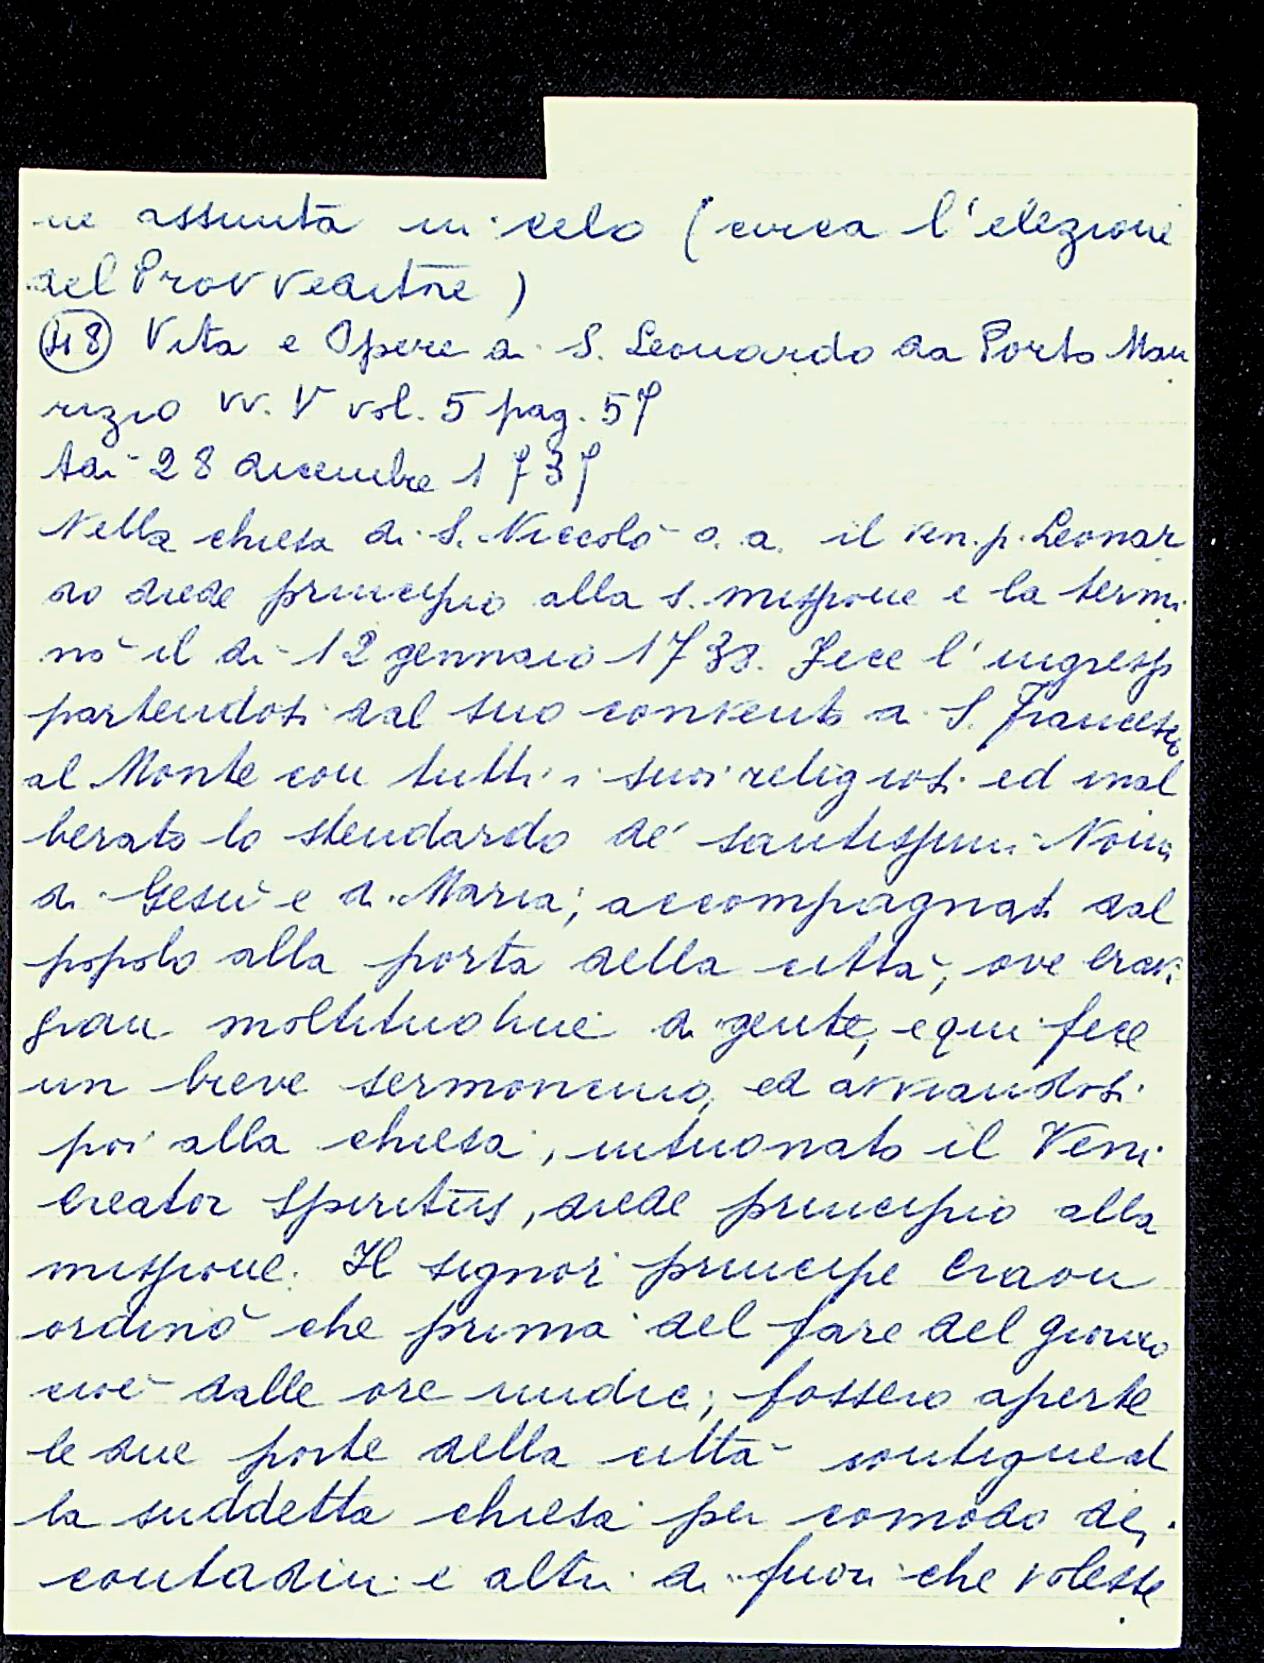 ne assunta in cielo (circa l'elezione
del Provveditore)
(48) Vita e Opere di S. Leonardo da Porto Mau
rizio vv. V vol. 5 pag. 57
Addì 28 dicembre 1737
Nella chiesa di S. Niccolò o. a. il ven. p. Leonar
do diede principio alla s. missione e la termi
nò il dì 12 gennaio 1738. Fece l'ingresso
partendosi dal suo convento di S. Francesco
al Monte con tutti i suoi religiosi ed inal
berato lo stendardo de' santissimi Nomi
di Gesù e di Maria; accompagnati dal
popolo alla porta della città, ove eravi
gran moltitudine di gente, e qui fece
un breve sermoncino, ed avviandosi
poi alla chiesa, intuonato il Veni
Creator Spiritus, diede principio alla
missione. Il signor principe Craon
ordinò che prima del fare del giorno
cioè dalle ore undici, fossero aperte
le due porte della città contigue al
la suddetta chiesa per comodo dei
contadini e altri di fuori che volesse